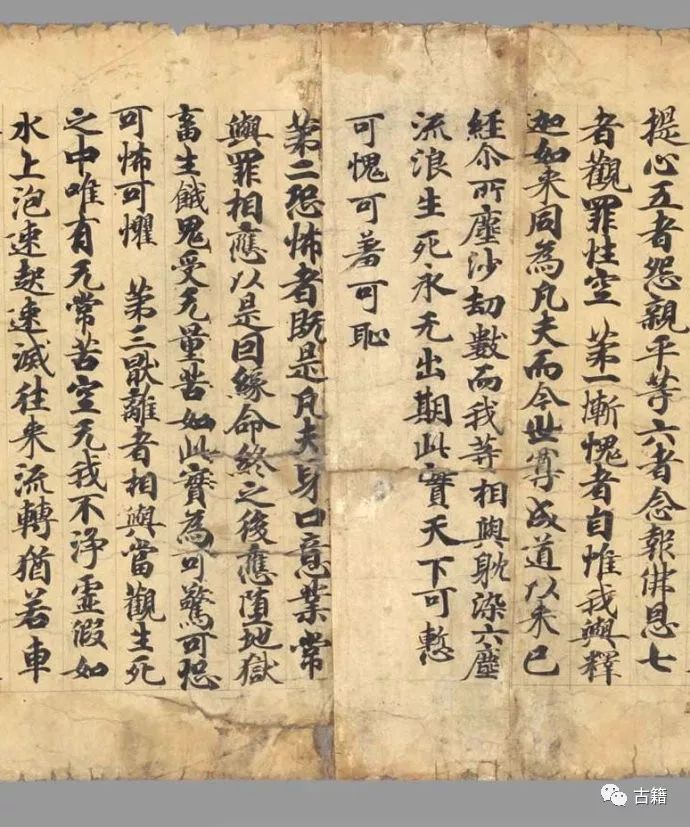 提心五者怨親平等六者念報佛恩七
者觀罪性空 第一慚愧者自惟我與釋
迦如来同為凡夫而今世尊成道以来已
經尒所塵沙劫數而我等相與躭染六塵
流浪生死永无出期此實天下可慙
可愧可羞可恥
第二恐怖者既是凡夫身口意業常
與罪相應以是因緣命終之後應墮地獄
畜生餓鬼受无量苦如此實為可驚可恐
可怖可懼 第三猒離者相與當觀生死
之中唯有无常苦空无我不淨虛假如
水上泡速起速滅往来流轉猶若車
古籍